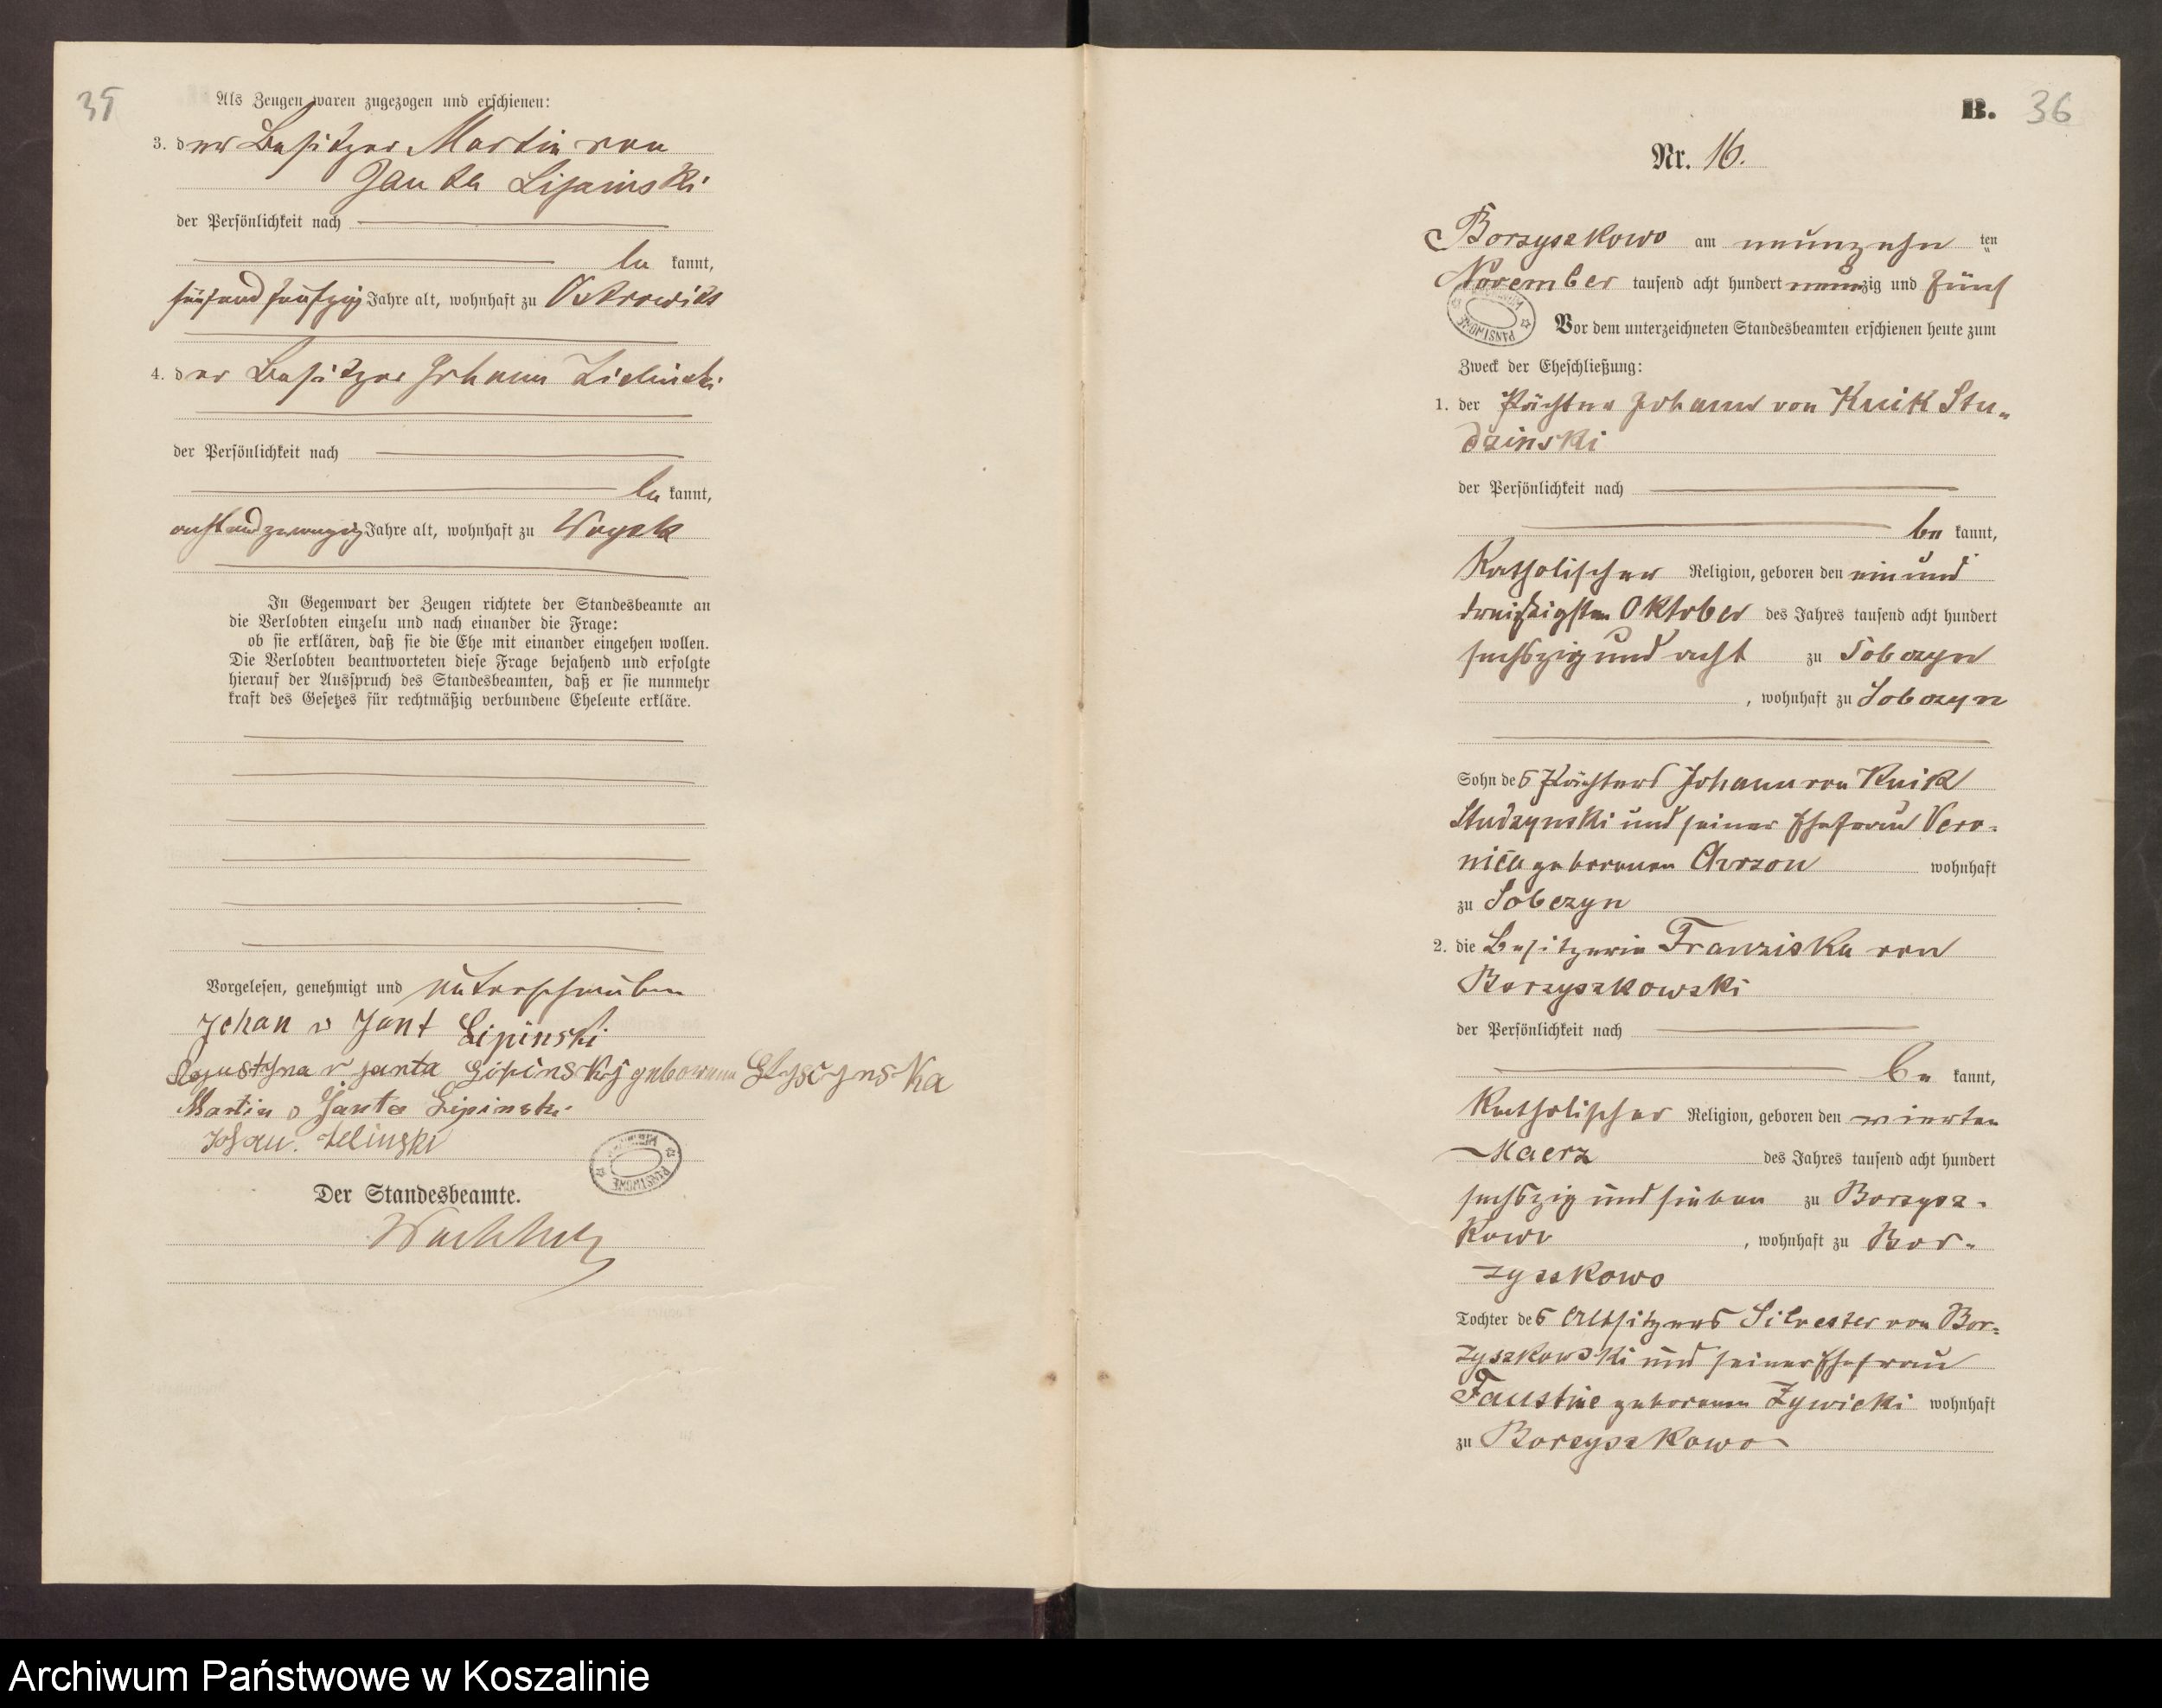 35
Als Zeugen waren zugezogen und erschienen:
3. der Besitzer Martin von
Janta Lipinski
der Persönlichkeit nach
be kannt,
fünfundfünfzig Jahre alt, wohnhaft zu Ostrowitt
4. der Besitzer Johann Zielinski
der Persönlichkeit nach
be kannt,
achtundzwanzig Jahre alt, wohnhaft zu
In Gegenwart der Zeugen richtete der Standesbeamte an
die Verlobten einzeln und nach einander die Frage:
ob sie erklären, daß sie die Ehe mit einander eingehen wollen.
Die Verlobten beantworteten diese Frage bejahend und erfolgte
hierauf der Ausspruch des Standesbeamten, daß er sie nunmehr
kraft des Gesetzes für rechtmäßig verbundene Eheleute erkläre.
Vorgelesen, genehmigt und unterschrieben
Johan v Jant Lipinski
v Janta geborene
Martin v Janta Lipinski
Johan.
PAŃSTWOWE
Der Standesbeamte.
B. 36
Nr. 16.
Borzyszkowo am neunzehn ten
November tausend acht hundert neunzig und fünf
PAŃSTWOWE
Vor dem unterzeichneten Standesbeamten erschienen heute zum
Zweck der Eheschließung:
1. der Pächter Johann von Knik Stu-
dzinski
der Persönlichkeit nach
be kannt,
Katholischer Religion, geboren den einund
dreißigsten Oktober des Jahres tausend acht hundert
sechszig und acht zu Sobczyn
, wohnhaft zu Sobczyn
Sohn des Pächters Johann von Knik
Studzynski und seiner Ehefrau Vero-
nica geborenen wohnhaft
zu Sobczyn
2. die Besitzerin Franziska von
Borzyszkowski
der Persönlichkeit nach
be kannt,
Katholischer Religion, geboren den vierten
Maerz des Jahres tausend acht hundert
sechszig und sieben zu Borzysz-
kowo , wohnhaft zu Bor-
zyszkowo
Tochter des Altsitzers Silvester von Bor-
zyszkowski und seiner Ehefrau
Faustine geborenen Zywicki wohnhaft
zu Borzyszkowo
Archiwum Państwowe w Koszalinie